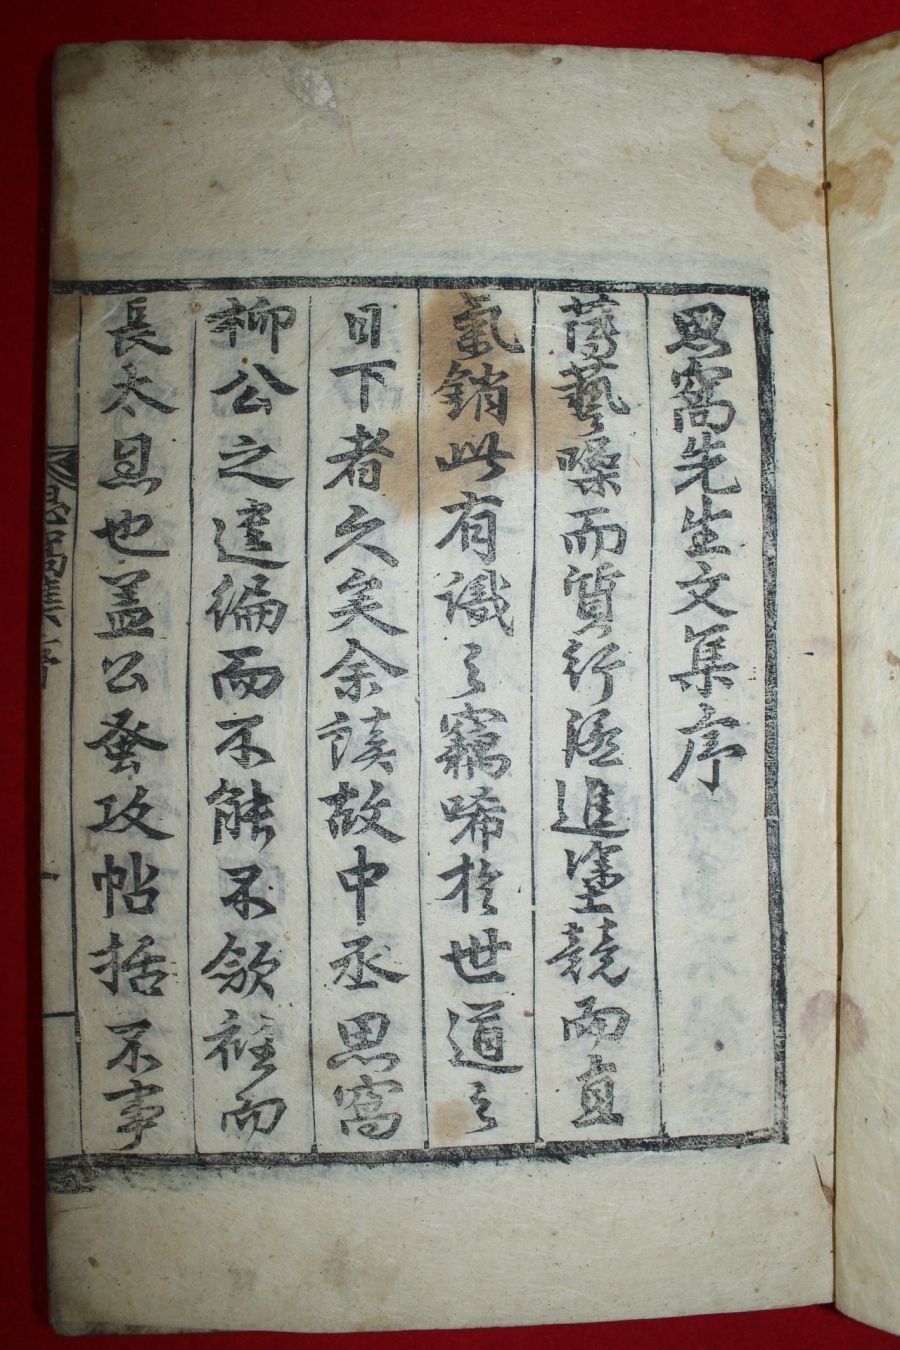 思窩先生文集序
藻藝噪而質行湮進塗競而真
氣銷此有識之竊唏於世道之
日下者久矣余讀故中丞思窩
柳公之遺編而不能不斂袵而
長太息也盖公蚤攻帖括不事
思窩集序
一